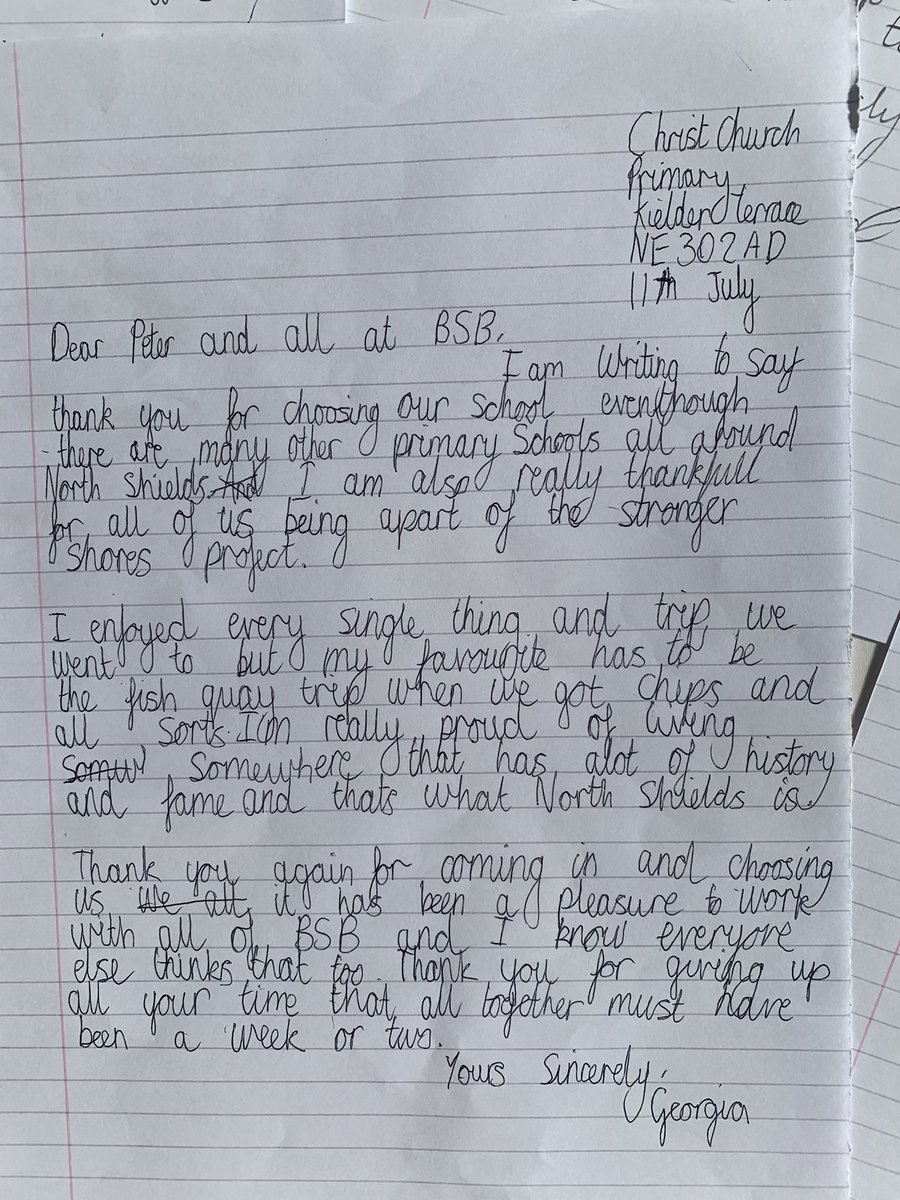 Christ Church
Primary
Kielder Terrace
NE302AD
11th July
Dear Peter and all at BSB,
I am writing to say
thank you for choosing our school eventhough
there are many other primary Schools all around
North Shields. And I am also really thankfull
for all of us being apart of the stronger
shores project.
I enjoyed every single thing and trip we
went to but my favourite has to be
the fish quay trip when we got chips and
all sorts. I'm really proud of living
somewhere that has alot of history
and fame and thats what North Shields is
Thank you again for coming in and choosing
us we all it has been a pleasure to work
with all of BSB and I know everyone
else thinks that too. Thank you for giving up
all your time that all together must have
been a week or two.
Yours Sincerely,
Georgia